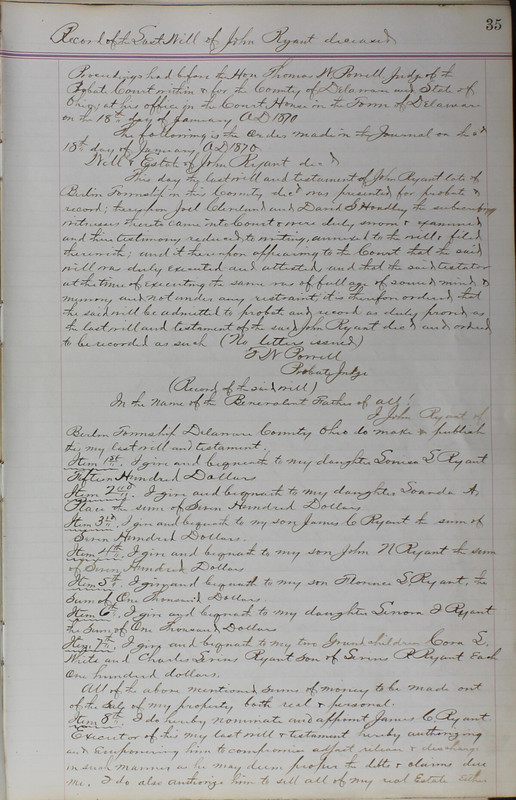 35
Record of the Last Will of John Ryant deceased
Proceedings had before the Hon Thomas W Powell Judge of the
Probate Court within & for the County of Delaware and State of
Ohio, at his office in the Court House in the Town of Delaware
on the 18th day of January A.D 1870
The following is the order made in the Journal on the
18th day of January A.D 1870
Will & Estate of John Ryant decd
This day the last will and testament of John Ryant late of
Berlin Township in this County decd was presented for probate &
record; thereupon Joel Cleveland and David S Hoadley the subscribing
witnesses thereto came into Court & were duly sworn & examined
and their testimony reduced to writing, annexed to the will & filed
therewith; and it thereupon appearing to the Court that the said
will was duly executed and attested and that the said testator
at the time of executing the same was of full age of sound mind &
memory and not under any restraint it is therefore ordered that
the said will be admitted to probate and record as duly proved as
the last will and testament of the said John Ryant decd and ordered
to be recorded as such (No letters issued)
T W Powell
Probate Judge
(Record of the said will)
In the Name of the Benevolent Father of all!
I John Ryant of
Berlin Township Delaware County Ohio do make & publish
this my last will and testament.
Item 1st. I give and bequeath to my daughter Louisa L Ryant
Fifteen Hundred Dollars
Item 2nd. I give and bequeath to my daughter A.
Place the sum of Seven Hundred Dollars
Item 3rd. I give and bequeath to my son James C Ryant the sum of
Seven Hundred Dollars.
Item 4th. I give and bequeath to my son John N Ryant the sum
of Seven Hundred Dollars
Item 5th. I give and bequeath to my son Florence S. Ryant, the
Sum of One Thousand Dollars.
Item 6th. I give and bequeath to my daughter Ryant
the Sum of One Thousand Dollars
Item 7th. I give and bequeath to my two Grandchildren Cora L.
White and Charles Ryant son of R Ryant Each
One hundred dollars.
All of the above mentioned sums of money to be made out
of the sale of my property both real & personal.
Item 8th. I do hereby nominate and appoint James C Ryant
Executor of this my last will & testament hereby authorizing
and Empowering him to compromise adjust release & discharge
in such manner as he may deem proper the debts & claims due
me. I do also authorize him to sell all of my real Estate